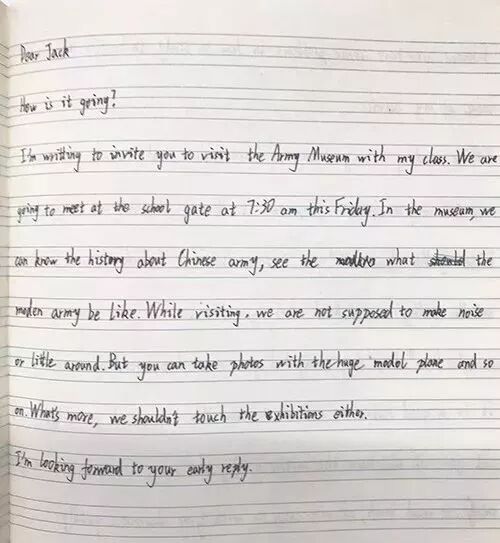 Dear Jack
How is it going?
I'm writting to invite you to visit the Army Museum with my class. We are
going to meet at the school gate at 7:30 am this Friday. In the museum, we
can know the history about Chinese army, see the what should the
moden army be like. While visiting, we are not supposed to make noise
or little around. But you can take photos with the huge model plane and so
on. What's more, we shouldn't touch the exhibitions either.
I'm looking forward to your early reply.